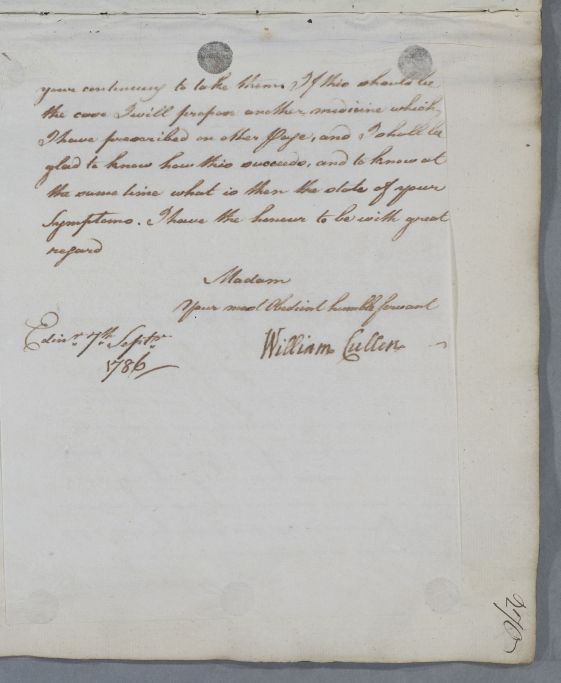 your continuing to take them, If this should be
the case I will propose another medicine which
I have prescribed on other Page, and I shall be
glad to know how this succeeds, and to know at
the same time what is then the state of your
Symptoms. I have the honour to be with great
regard
Madam
Your most Obedient humble Servant
William Cullen
Edinr. 7th. Septr.
1786